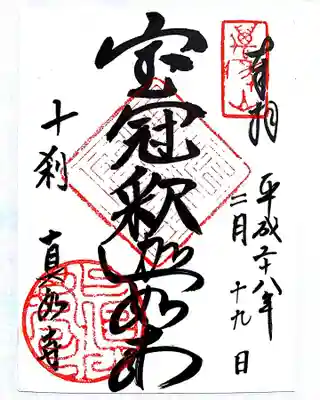 奉拝
平成二十八年
二月十九日
宝冠釈迦如来
十刹 真如寺